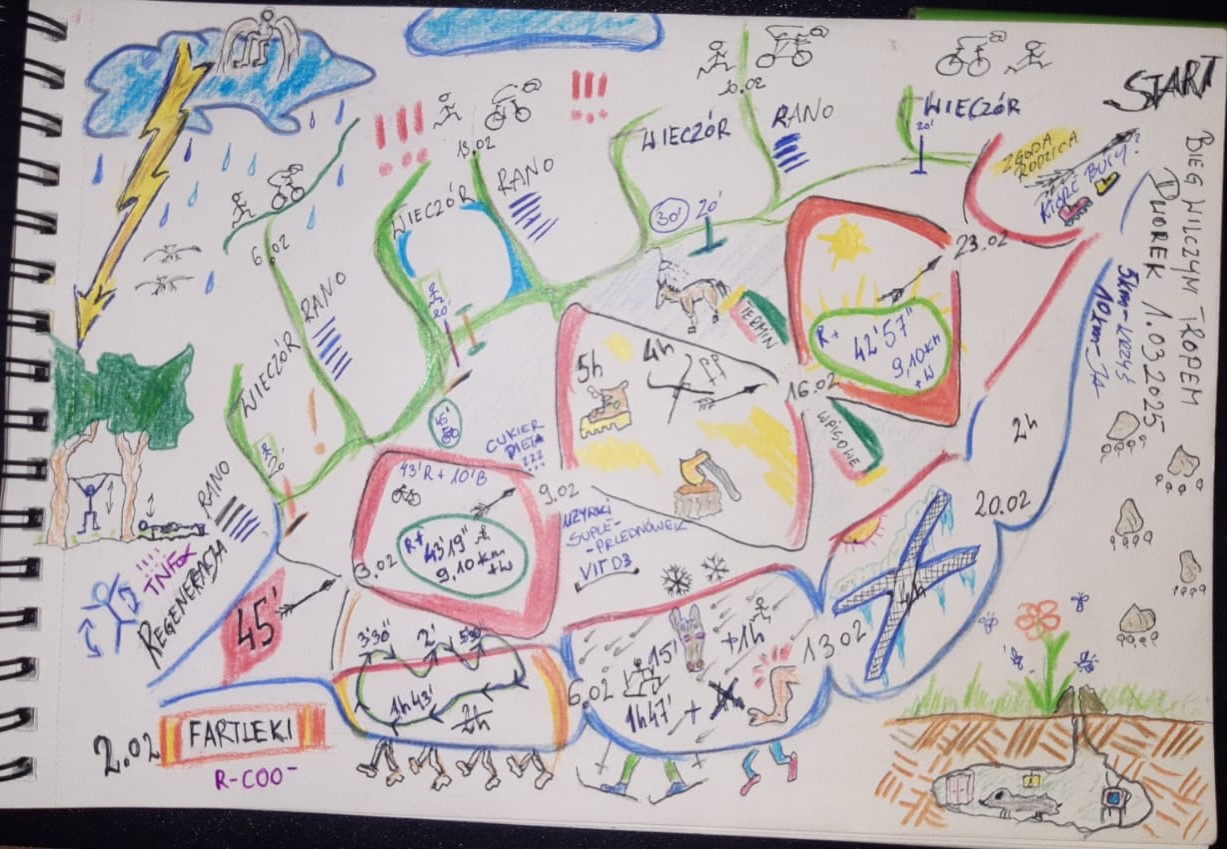 START
BIEG WILCZYM TROPEM
DWOREK 1.03.2025
5km-KRZYŚ
10km-JA
ZGODA
RODZICA
KTÓRE BUTY?
WIECZÓR
20'
10.02
RANO
WIECZÓR
30'
20'
!!!
13.02
RANO
WIECZÓR
20'
!!!
6.02
RANO
WIECZÓR
20'
!
RANO
REGENERACJA
INFEK
45'
45'
23.02
R+
42'57"
9,10km
+W
TERMIN
16.02
WPISOWE
5h
4h
CUKIER
DIETA
???
9.02
WYNIKI
SUPLE-
-PRZEDNÓWEK
VIT D3
43'R + 10'B
R+
43'19"
9,10km
+W
3.02
2h
20.02
13.02
15'
+1h
1h47' +
6.02
3'30"
2'
5'30"
1h43'
2h
2.02
FARTLEKI
R-COO-